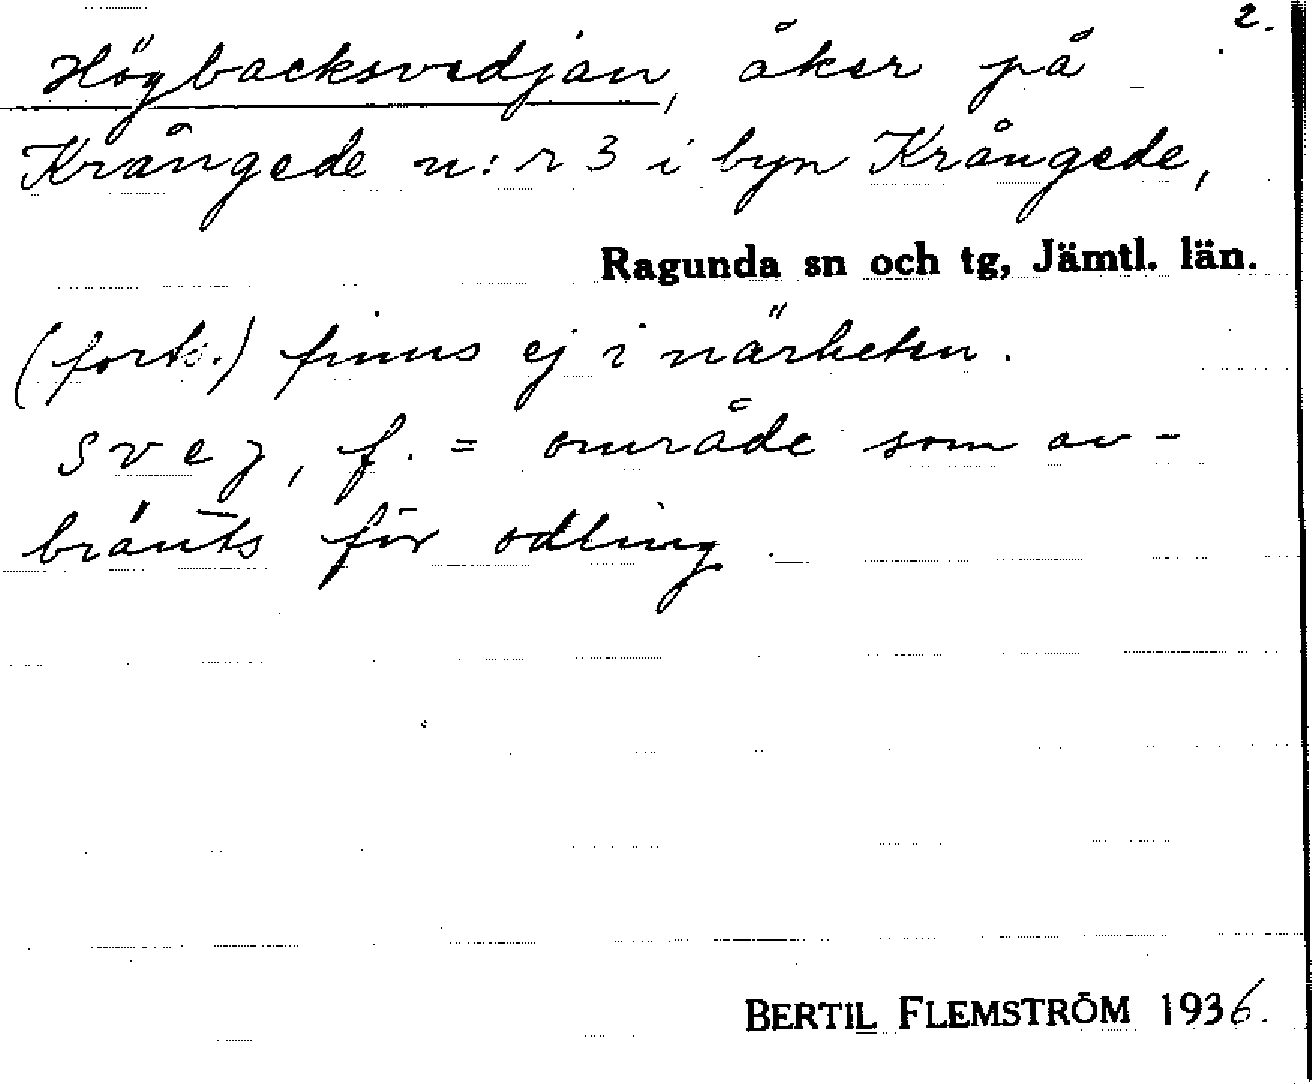 2.
Högbacksvedjan, åker på
Krångede n:r 3 i byn Krångede,
Ragunda sn och tg, Jämtl. län.
(forts.) finns ej i närheten.
svej, f. = område som av-
bränts för odling.
BERTIL FLEMSTRÖM 1936.